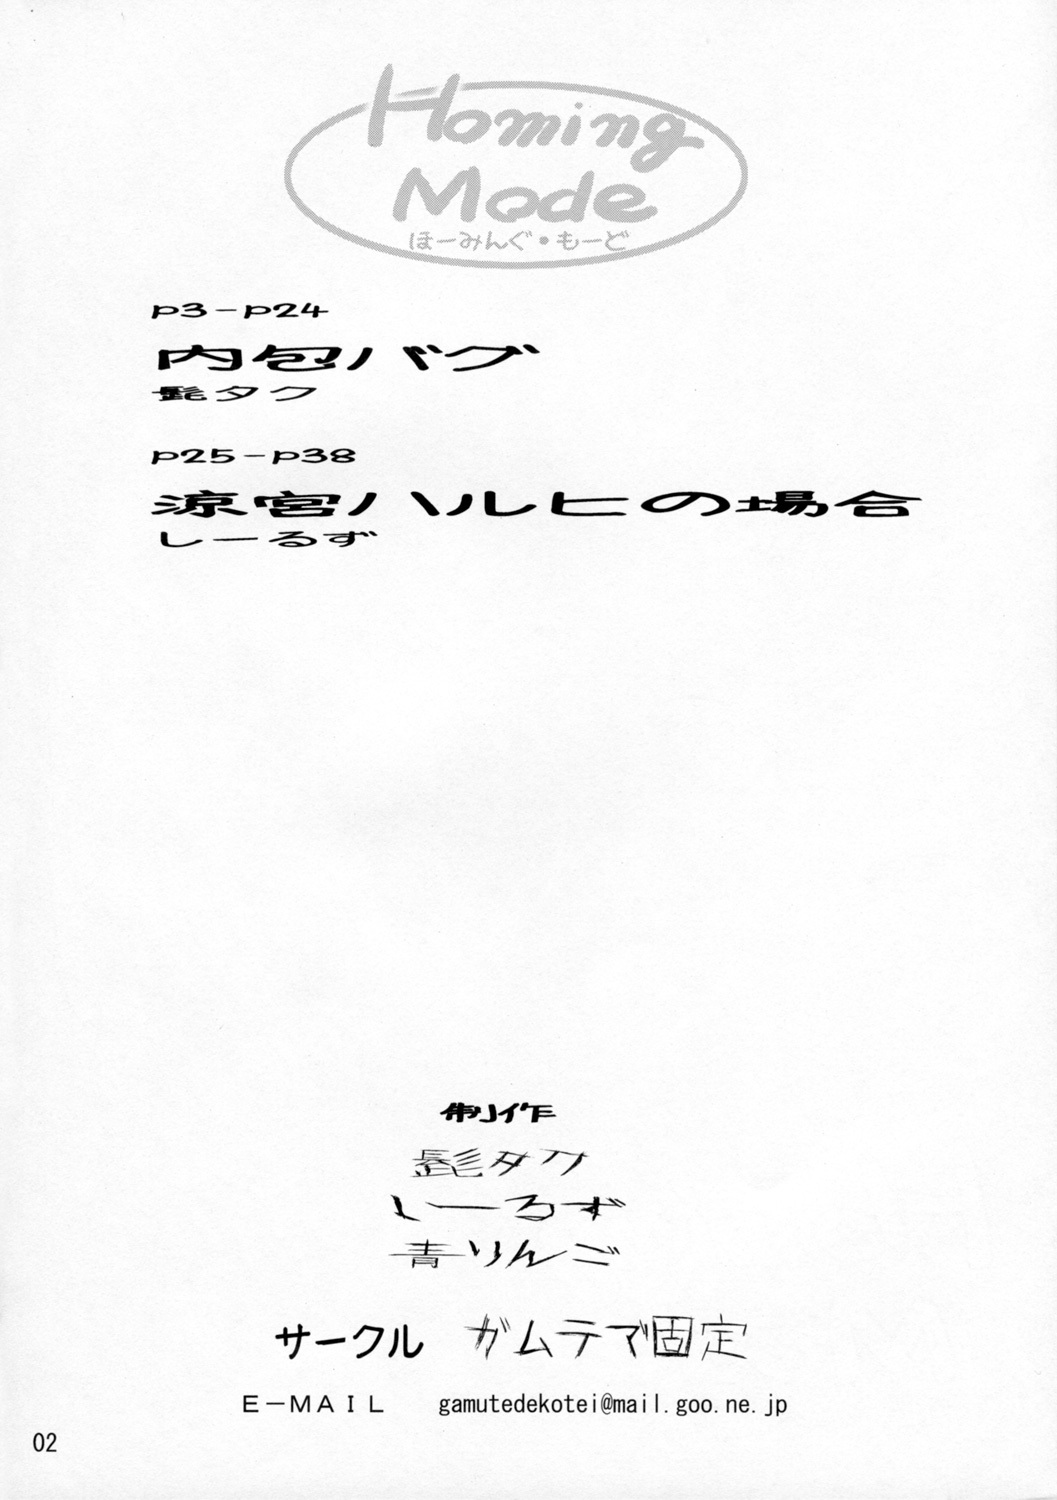 Homing
Mode
ほーみんぐ・もーど
p3-p24
内包バグ
髭タク
p25-p38
涼宮ハルヒの場合
しーるず
制作
髭タク
しーるず
青りんご
サークル ガムテデ固定
E-MAIL gamutedekotei@mail.goo.ne.jp
02